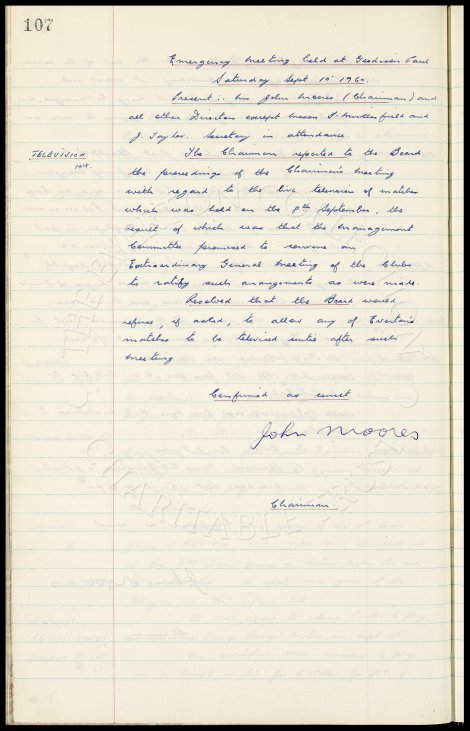 107
Emergency Meeting held at Goodison Park
Saturday Sept 10th 1960.
Present :- Mr John Moores (Chairman) and
all other Directors except Messrs
J. Taylor. Secretary in attendance.
TELEVISION
The Chairman reported to the Board
the proceedings of the Chairmen's Meeting
with regard to the live television of matches
which was held on the 8th September, the
result of which was that the Management
Committee promised to convene an
Extraordinary General Meeting of the Clubs
to ratify such arrangements as were made.
Resolved that the Board would
refuse, if asked, to allow any of Everton's
matches to be televised until after such
Meeting
Confirmed as correct
John Moores
Chairman.
CHARITABLE TRUST